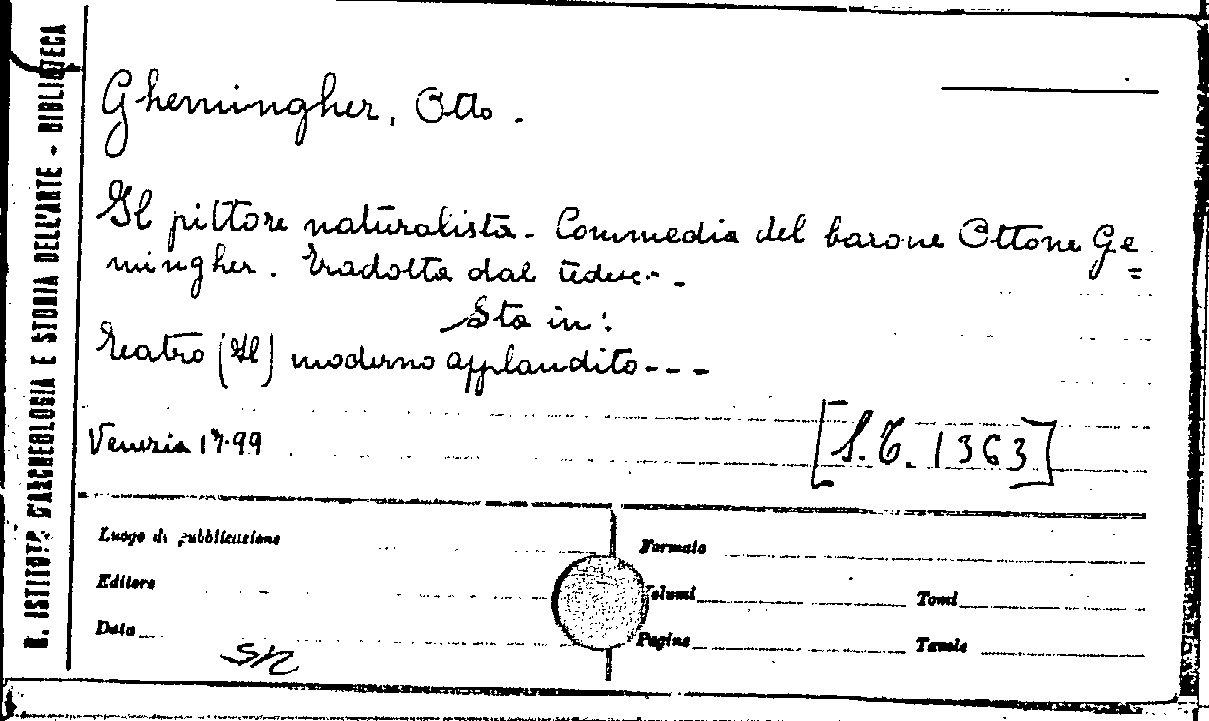 R. ISTITUTO D'ARCHEOLOGIA E STORIA DELL'ARTE - BIBLIOTECA
Ghemingher, Otto.
Il pittore naturalista. Commedia del barone Ottone Ge=
mingher. Tradotta dal tedesc..
Sta in:
Teatro (Il) moderno applaudito---
Venezia 1799
[S.T. 1363]
Luogo di pubblicazione
Formato
Editore
Volumi
Tomi
Data
Pagine
Tavole